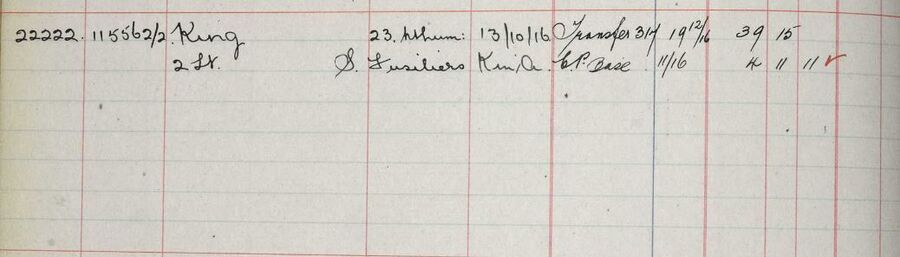 22222. 115562/2. King 23. Nthum: 13/10/16 Transfer 31/ 19 12/16 39 15
2 Lt. S. Fusiliers K in A. C.P. Base 11/16 4 11 11